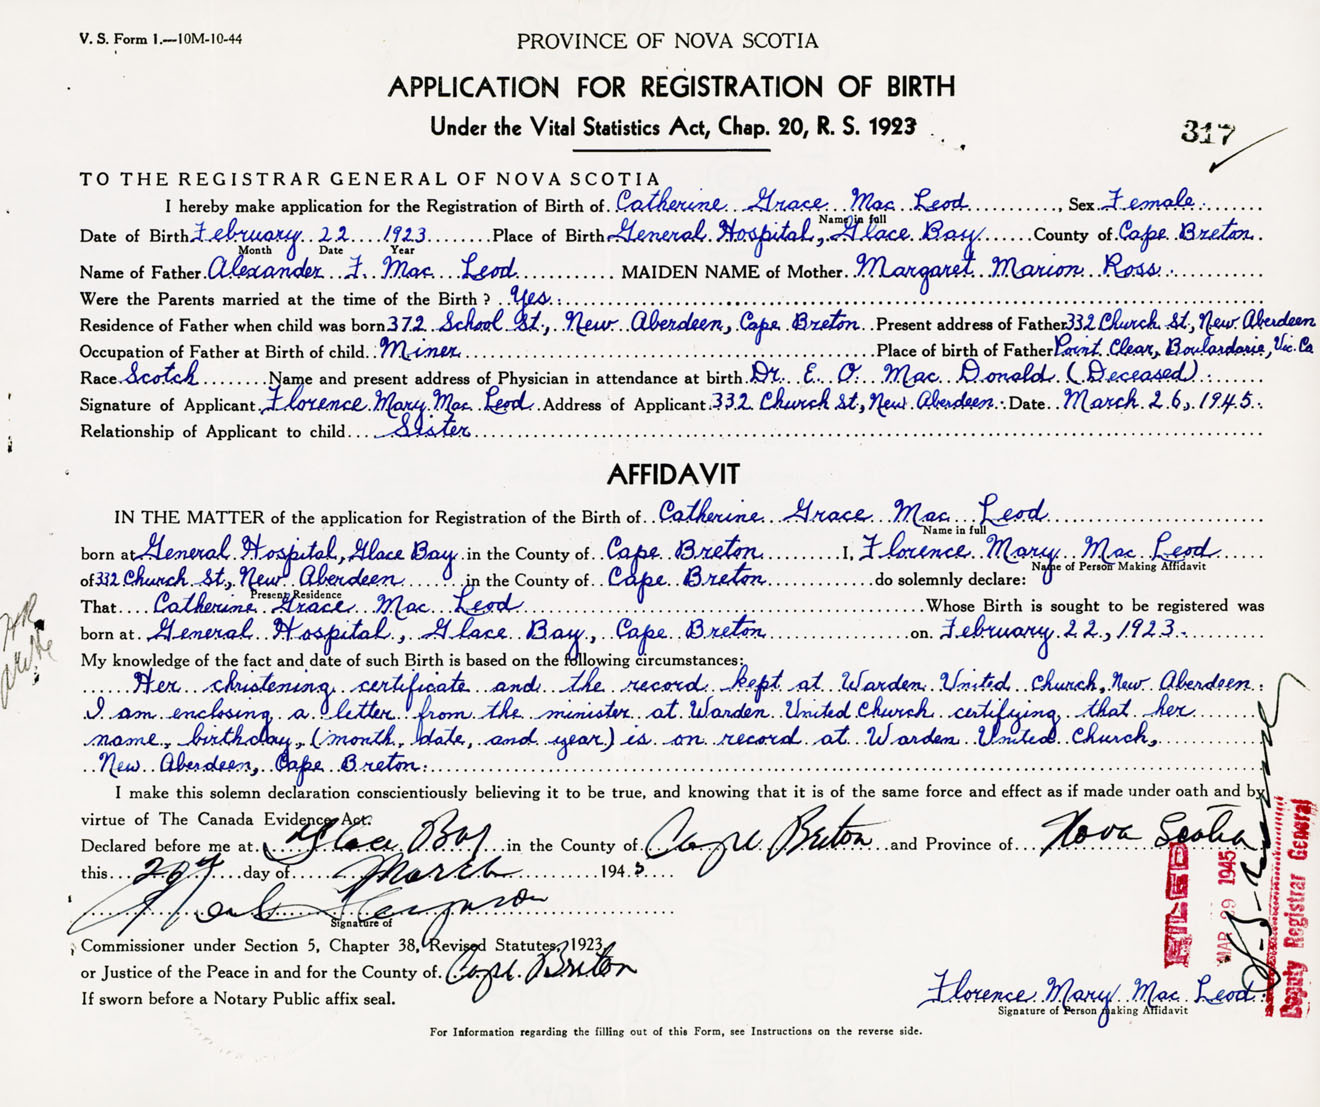 V. S. Form 1.—10M-10-44
PROVINCE OF NOVA SCOTIA
APPLICATION FOR REGISTRATION OF BIRTH
Under the Vital Statistics Act, Chap. 20, R. S. 1923
317
TO THE REGISTRAR GENERAL OF NOVA SCOTIA
I hereby make application for the Registration of Birth of Catherine Grace Mac Leod, Sex Female
Name in full
Date of Birth February 22 1923 Place of Birth General Hospital, Glace Bay County of Cape Breton
Month Date Year
Name of Father Alexander F. Mac Leod MAIDEN NAME of Mother Margaret Marion Ross
Were the Parents married at the time of the Birth? Yes
Residence of Father when child was born 372 School St., New Aberdeen, Cape Breton Present address of Father 332 Church St, New Aberdeen
Occupation of Father at Birth of child Miner Place of birth of Father Point Clear, Boulardarie, Vic. Co
Race Scotch Name and present address of Physician in attendance at birth Dr. E. O. Mac Donald (Deceased)
Signature of Applicant Florence Mary Mac Leod Address of Applicant 332 Church St, New Aberdeen Date March 26, 1945
Relationship of Applicant to child Sister
AFFIDAVIT
IN THE MATTER of the application for Registration of the Birth of Catherine Grace Mac Leod
Name in full
born at General Hospital, Glace Bay in the County of Cape Breton I, Florence Mary Mac Leod
Name of Person Making Affidavit
of 332 Church St., New Aberdeen in the County of Cape Breton do solemnly declare:
Present Residence
That Catherine Grace Mac Leod Whose Birth is sought to be registered was
born at General Hospital, Glace Bay, Cape Breton on February 22, 1923
My knowledge of the fact and date of such Birth is based on the following circumstances:
Her christening certificate and the record kept at Warden United Church, New Aberdeen.
I am enclosing a letter from the minister at Warden United Church certifying that her
name, birthday, (month, date, and year) is on record at Warden United Church,
New Aberdeen, Cape Breton.
I make this solemn declaration conscientiously believing it to be true, and knowing that it is of the same force and effect as if made under oath and by
virtue of The Canada Evidence Act.
Declared before me at Glace Bay in the County of Cape Breton and Province of Nova Scotia
this day of March 1945
Signature of
Commissioner under Section 5, Chapter 38, Revised Statutes, 1923,
or Justice of the Peace in and for the County of Cape Breton
If sworn before a Notary Public affix seal.
Florence Mary Mac Leod
Signature of Person making Affidavit
FILED
MAR 29 1945
Deputy Registrar General
For Information regarding the filling out of this Form, see Instructions on the reverse side.